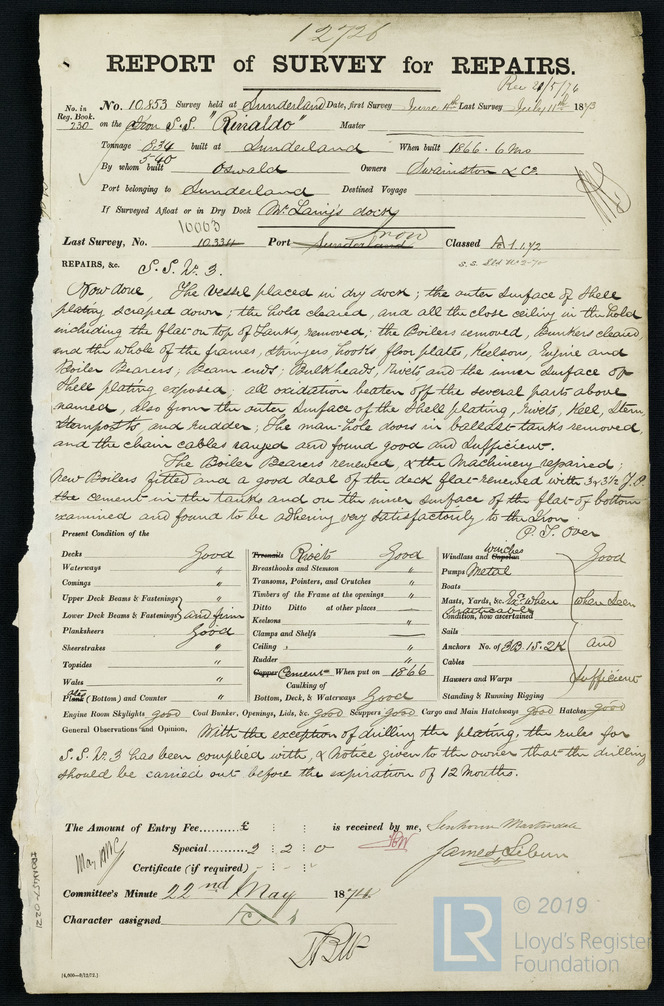 12726
REPORT of SURVEY for REPAIRS.
Rec 21/5/76
No. in Reg. Book. 730
No. 10,853 Survey held at Sunderland Date, first Survey June 4th Last Survey July 11th 1873
on the Iron S.S. "Rinaldo" Master
Tonnage 834 540 built at Sunderland When built 1866. 6 Mo
By whom built Oswald Owners Swainston & Co.
Port belonging to Sunderland Destined Voyage
If Surveyed Afloat or in Dry Dock Mr. Laing's dock
10063 Iron
Last Survey, No. 10334 Port Sunderland Classed A 1
REPAIRS, &c. S.S. No. 3.
Now done, The Vessel placed in dry dock; the outer surface of Shell
plating scraped down; the hold cleared, and all the close ceiling in the hold
including the flat on top of Tanks, removed; the Boilers removed, Bunkers cleared,
and the whole of the frames, Stringers, hooks, floor plates, Keelsons, Engine and
Boiler Bearers; Beam ends; Bulkheads, Rivets and the inner surface of
Shell plating exposed; all oxidation beaten off the several parts above
named, also from the outer surface of the Shell plating, Rivets, Keel, Stem,
Sternposts, and Rudder; The man-hole doors in ballast tanks removed,
and the chain cables ranged and found good and Sufficient.
The Boiler Bearers renewed, & the Machinery repaired;
New Boilers fitted and a good deal of the deck flat renewed with 3 x 3½ Y.P.
the cement in the tanks and on the inner surface of the flat of bottom
examined and found to be adhering very satisfactorily to the Iron.
P. T. Over
Present Condition of the
Decks Good
Waterways "
Comings "
Upper Deck Beams & Fastenings
Lower Deck Beams & Fastenings } and firm
Planksheers Good
Sheerstrakes "
Topsides "
Wales "
Plank Plates (Bottom) and Counter "
Treenails Rivets Good
Breasthooks and Stemson "
Transoms, Pointers, and Crutches "
Timbers of the Frame at the openings "
Ditto Ditto at other places —
Keelsons "
Clamps and Shelfs —
Ceiling "
Rudder "
Copper Cement When put on 1866
Caulking of
Bottom, Deck, & Waterways Good
Windlass and Capstan Winches Good
Pumps Metal
Boats
Masts, Yards, &c. Exd. when practicable when seen
Condition, how ascertained
Sails
Anchors No. of 3B. 1S. 2K and
Cables
Hawsers and Warps Sufficient
Standing & Running Rigging
Engine Room Skylights good Coal Bunker, Openings, Lids, &c. good Scuppers good Cargo and Main Hatchways Good Hatches good
General Observations and Opinion, With the exception of drilling the plating, the rules for
S.S. No. 3 has been complied with, & Notice given to the owner that the drilling
should be carried out before the expiration of 12 Months.
The Amount of Entry Fee..........£ : : is received by me,
Special.. 3 : 2 : 0
Certificate (if required) - : - : "
James Lebun
Committee's Minute 22nd May 187
Character assigned
[4,000—8/12/72.]
IRON457-0221
LR
© 2019
Lloyd's Register
Foundation